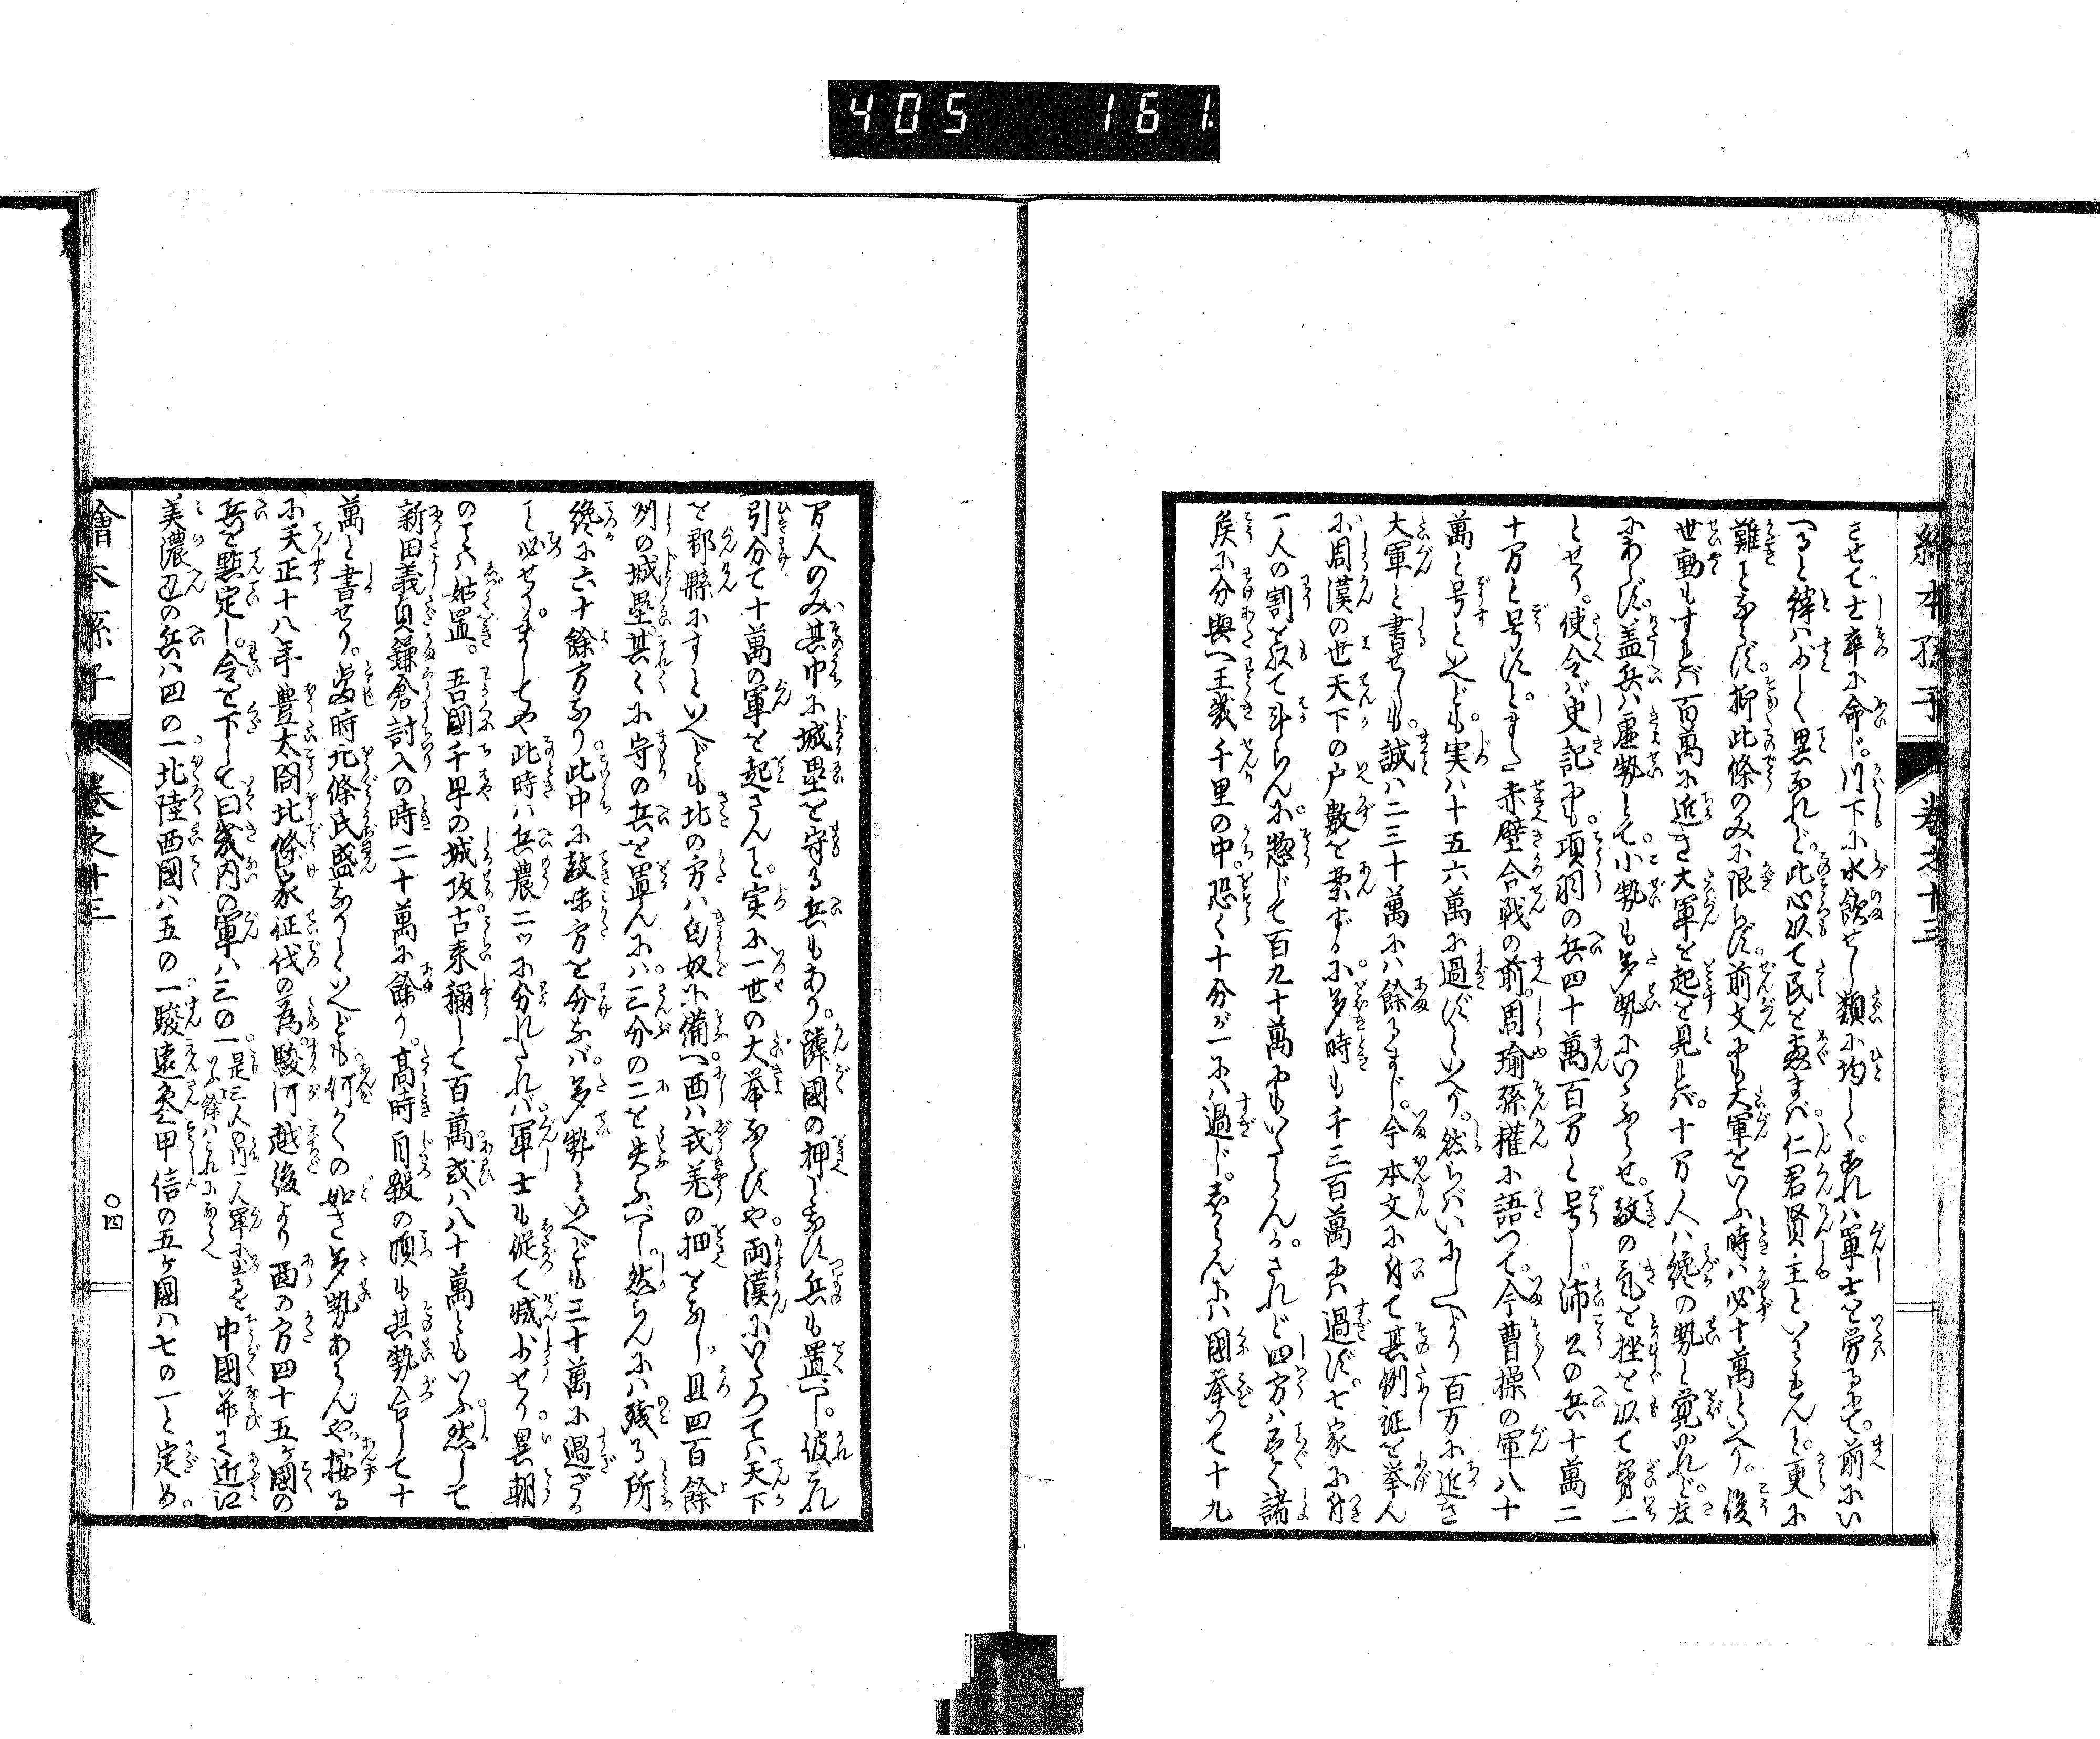 405 161
繪本孫子 巻之十三
させて士卒に命じ。川下に水飲せし類に均し。これハ軍士を労るにて。前にい
へると緯ハ少しく異なれど。此心以て民を恵まバ。仁君賢主といはれんと。更に
難きことならず。抑此條のみに限らず。前文にも大軍をいふ時ハ必十萬といへり。後
世動もすれバ百萬に近き大軍を起を見れバ。十万人ハ纔の勢と覚ゆれど。左
にあらず。盖兵ハ虚勢とて。小勢も多勢にいひふらせ。敵の気を挫を以て第一
とせり。使令バ史記にも。項羽の兵四十萬百万と号し。沛公の兵十萬二
十万と号すと。また赤壁合戦の前。周瑜孫權に語つて。今曹操の軍八十
萬と号といへども。実ハ十五六萬に過ずといへり。然らバいにしへより百万に近き
大軍と書せしも。誠ハ二三十萬にハ餘るまじ。今本文に付て其例証を挙ん
に周漢の世天下の戸數を案ずるに。多時も千三百萬にハ過ず。七家に付
一人の割を以て斗らんに。惣じて百九十萬にもいたらんか。されど四方ハ尽く諸
矦に分與へ王畿千里の中。恐く十分が一にハ過じ。あらんにハ國挙つて十九
万人のみ其中に城塁を守る兵もあり。隣國の押となす兵も置べし。彼これ
引分て十萬の軍を起さんこと。実に一世の大挙ならずや。両漢にいたつてハ天下
を郡縣にすといへども北の方ハ匈奴に備へ。西ハ戎羌の押をなし。且四百餘
州の城塁其々に守の兵を置んにハ。三分の二を失ふべし。然らんにハ残る所
纔に六十餘万なり。此中に敵味方を分なバ。多勢といへども三十萬に過ざる
こと必せり。ましてや此時ハ兵農二ツに分れたれバ。軍士も従て減少せり。異朝
のことハ姑置。吾國千早の城攻古来稱して百萬或ハ八十萬ともいふ。然して
新田義貞鎌倉討入の時二十萬に餘り。高時自殺の頃も其勢合して十
萬と書せり。當時北條氏盛なりといへども。何かくの如き多勢あらんや。按る
に天正十八年豊太閤北條家征伐の為。駿河越後より西の方四十五ヶ國の
兵を點定し。令を下して曰畿内の軍ハ三の一。是三人の内一人軍に出るをいふ餘ハこれにならへ 中國并に近江
美濃辺の兵ハ四の一。北陸西國ハ五の一。駿遠参甲信の五ヶ國ハ七の一と定め。
繪本孫子 巻之十三 〇四